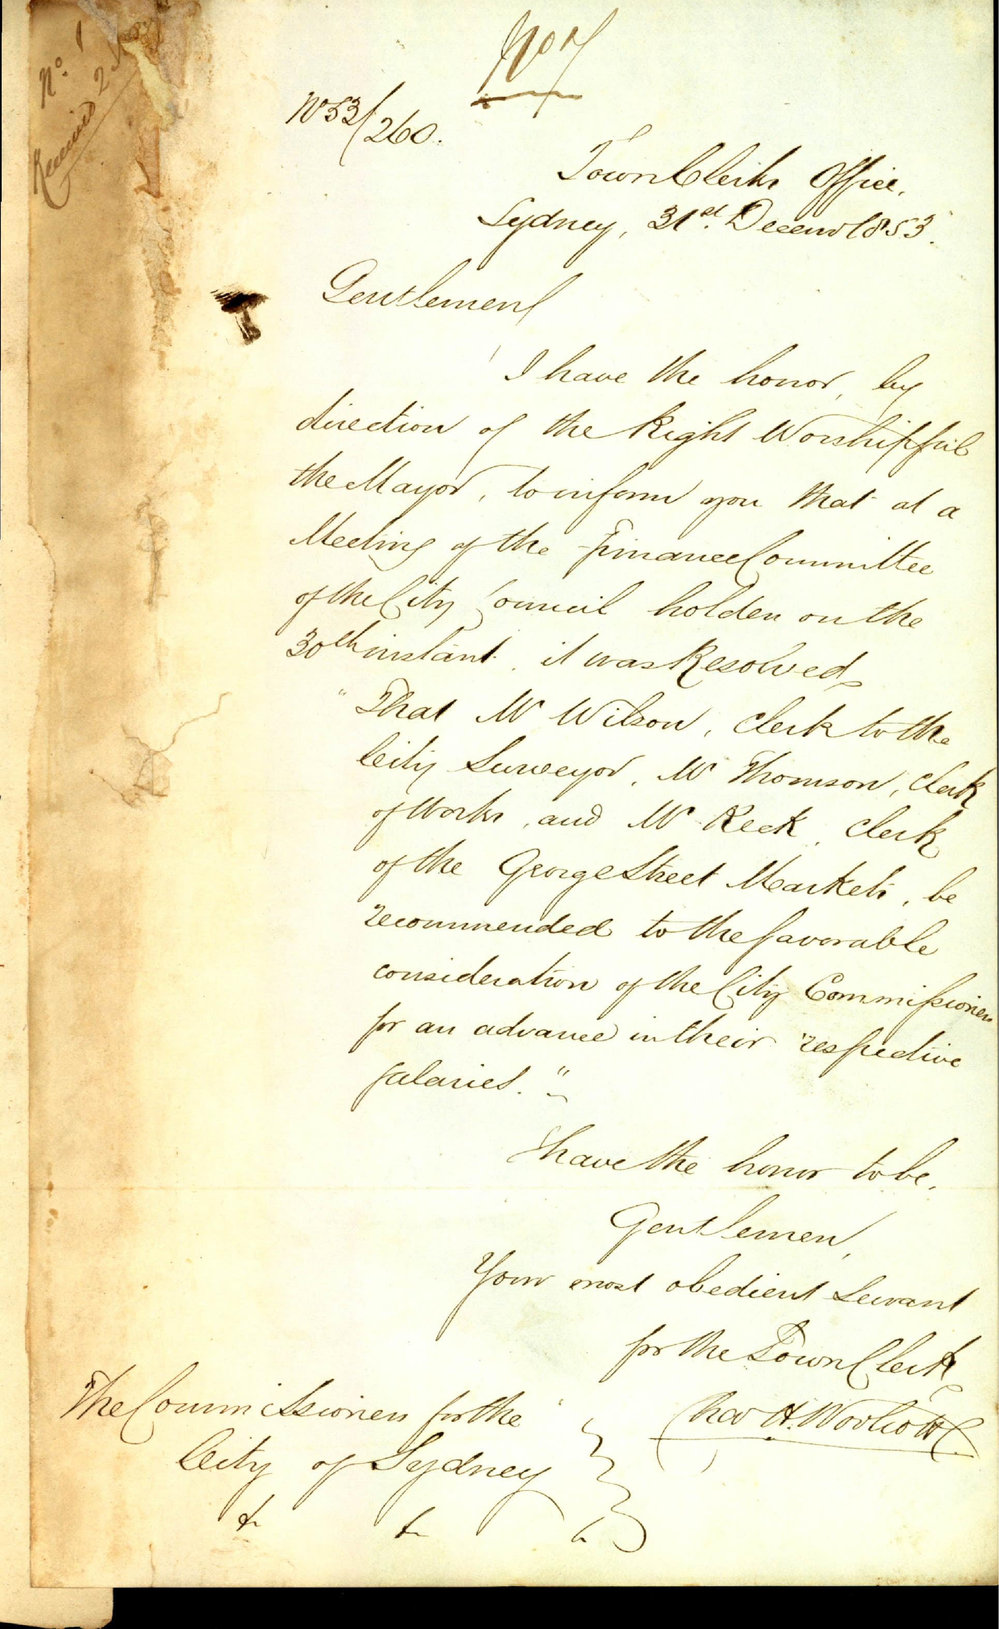 No. 1
Received 2
No 1
No 53/260.
Town Clerks Office,
Sydney, 31st. Decemr 1853.
Gentlemen
I have the honor, by
direction of the Right Worshipful
the Mayor, to inform you that at a
Meeting of the Finance Committee
of the City Council holden on the
30th instant, it was Resolved,
"That Mr Wilson, Clerk to the
City Surveyor, Mr Thomson, Clerk
of Works, and Mr Keck, Clerk
of the George Street Markets, be
recommended to the favorable
consideration of the City Commissioners
for an advance in their respective
salaries."
I have the honor to be,
Gentlemen,
Your most obedient Servant
for the Town Clerk
Chas H. Woolcott
The Commissioners for the
City of Sydney
&c &c &c